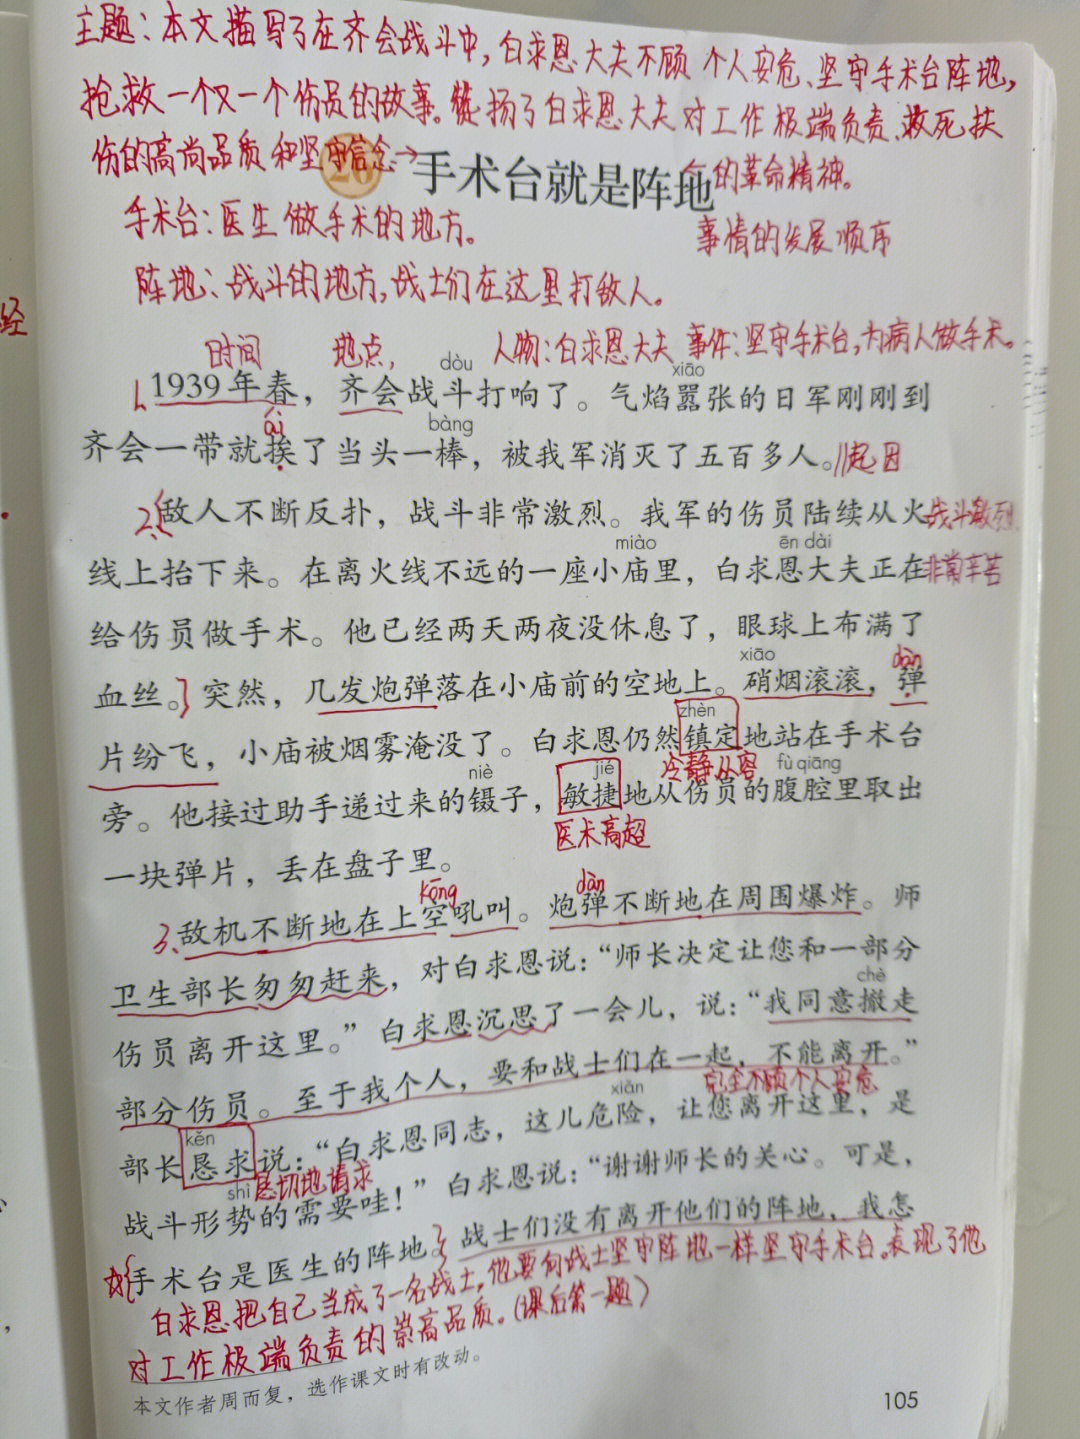 主题：本文描写了在齐会战斗中，白求恩大夫不顾个人安危、坚守手术台阵地，
抢救一个又一个伤员的故事。赞扬了白求恩大夫对工作极端负责、救死扶
伤的高尚品质和坚守信念→
的革命精神。
26 手术台就是阵地
手术台：医生做手术的地方。
事情的发展顺序
阵地：战斗的地方，战士们在这里打敌人。
经
时间 地点， 人物：白求恩大夫 事件：坚守手术台，为病人做手术。
dòu xiāo
1、1939年春，齐会战斗打响了。气焰嚣张的日军刚刚到
ái bàng
齐会一带就挨了当头一棒，被我军消灭了五百多人。//起因
2、{敌人不断反扑，战斗非常激烈。我军的伤员陆续从火 战斗激烈
miào ēn dài
线上抬下来。在离火线不远的一座小庙里，白求恩大夫正在 非常辛苦
给伤员做手术。他已经两天两夜没休息了，眼球上布满了
xiāo dàn
血丝。}突然，几发炮弹落在小庙前的空地上。硝烟滚滚，弹
zhèn
片纷飞，小庙被烟雾淹没了。白求恩仍然镇定地站在手术台
冷静从容
niè jié fù qiāng
旁。他接过助手递过来的镊子，敏捷地从伤员的腹腔里取出
医术高超
一块弹片，丢在盘子里。
kōng dàn
3、敌机不断地在上空吼叫。炮弹不断地在周围爆炸。师
卫生部长匆匆赶来，对白求恩说：“师长决定让您和一部分
chè
伤员离开这里。”白求恩沉思了一会儿，说：“我同意撤走
部分伤员。至于我个人，要和战士们在一起，不能离开。”
完全不顾个人安危
kěn xiǎn
部长恳求说：“白求恩同志，这儿危险，让您离开这里，是
恳切地请求
shì
战斗形势的需要哇！”白求恩说：“谢谢师长的关心。可是，
手术台是医生的阵地。}战士们没有离开他们的阵地，我怎
白求恩把自己当成了一名战士，他要向战士坚守阵地一样坚守手术台。表现了他
对工作极端负责的崇高品质。（课后第一题）
本文作者周而复，选作课文时有改动。
105